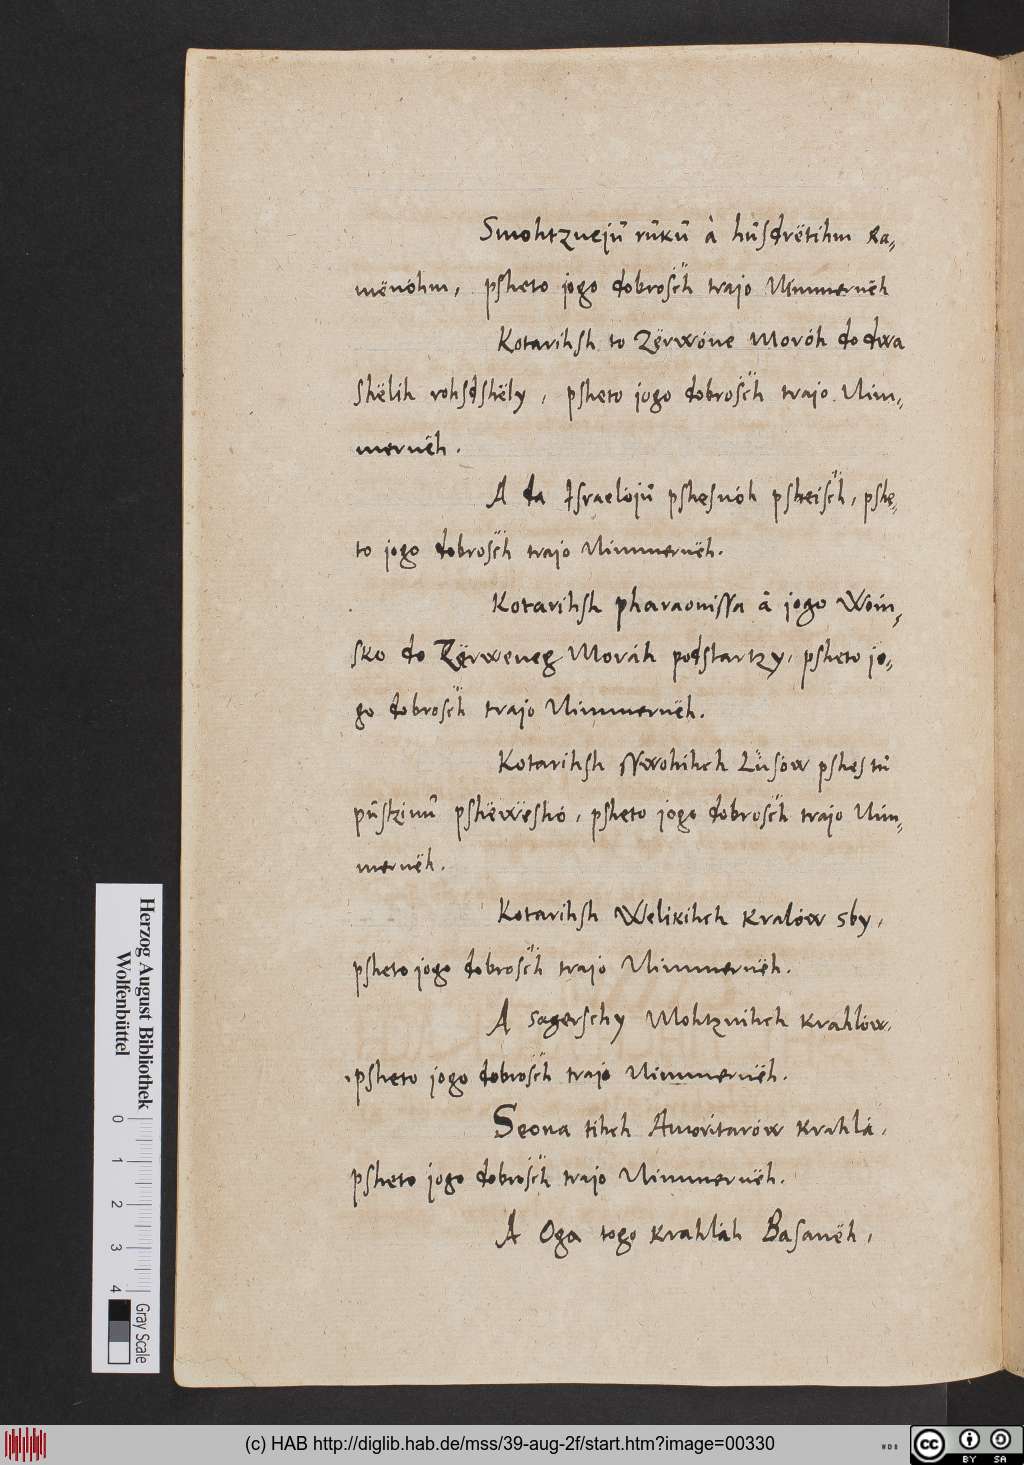 Smohtzneju̇ ru̇ku̇ à hu̇sdrëtihm Ra⸗
mënóhm, psheto jogo dobrosc̈h trajo Nimmernëh
Kotarihsh to Zërwóne Moróh do dwa
shëlih rohsdshëly, psheto jogo dobrosc̈h trajo Nim⸗
mernëh.
A da Israelóju̇ pshesnóh psheisc̈h, pshe⸗
to jogo dobrosc̈h trajo Nimmernëh.
Kotarihsh pharaonissa å jogo Woin⸗
sko do Zërweneg Moráh podstartzy, psheto jo⸗
go dobrosc̈h trajo Nimmernëh.
Kotarihsh Swohihch Lüsów pshes tu̇
pu̇stzinu̇ pshëwëshó, psheto jogo dobrosc̈h trajo Nim⸗
mernëh.
Kotarihsh Welikihch Kralów sby,
psheto jogo dobrosc̈h trajo Nimmernëh.
A sagerschy Mohtznihch Krahlów,
psheto jogo dobrosc̈h trajo Nimmernëh.
Seona tihch Amoritarów Krahlá,
psheto jogo dobrosc̈h trajo Nimmernëh.
A Oga togo Krahláh Basanëh,
Herzog August Bibliothek
Wolfenbüttel
0 1 2 3 4
Gray Scale
(c) HAB http://diglib.hab.de/mss/39-aug-2f/start.htm?image=00330
WDB
cc BY SA